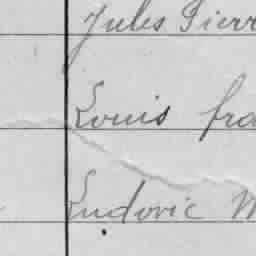 Jules Pierr
Louis fra
Ludovic M